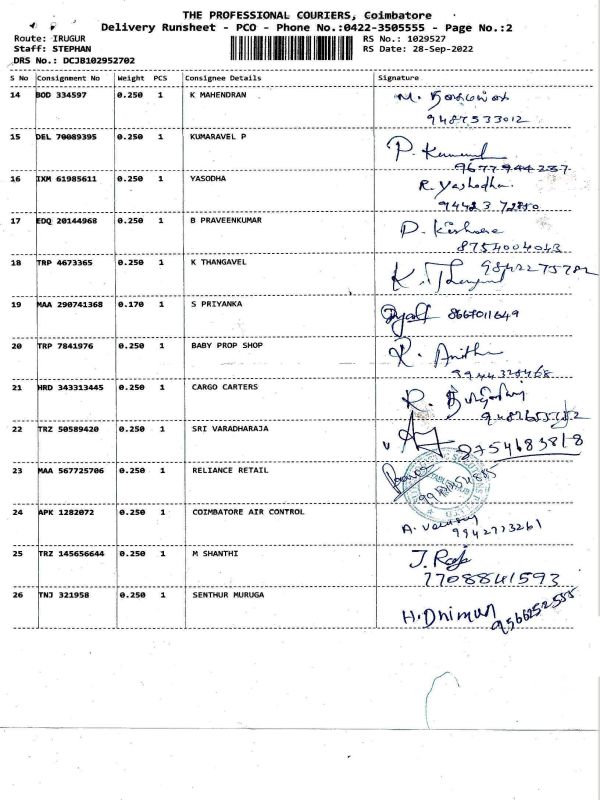 THE PROFESSIONAL COURIERS, Coimbatore
Delivery Runsheet - PCO - Phone No.:0422-3505555 - Page No.:2
Route: IRUGUR RS No.: 1029527
Staff: STEPHAN RS Date: 28-Sep-2022
DRS No.: DCJB102952702
S No Consignment No Weight PCS Consignee Details Signature
14 BOD 334597 0.250 1 K MAHENDRAN
9487533012
15 DEL 70089395 0.250 1 KUMARAVEL P P.
9677944237
16 IXM 61985611 0.250 1 YASODHA R. Yashodha
94423 72850
17 EDQ 20144968 0.250 1 B PRAVEENKUMAR P. Kishore
8754004043
18 TRP 4673365 0.250 1 K THANGAVEL K. 9842275782
19 MAA 290741368 0.170 1 S PRIYANKA 8667011649
20 TRP 7841976 0.250 1 BABY PROP SHOP R. Anitha
21 HRD 343313445 0.250 1 CARGO CARTERS R.
22 TRZ 50589420 0.250 1 SRI VARADHARAJA
8754683818
23 MAA 567725706 0.250 1 RELIANCE RETAIL
24 APK 1282072 0.250 1 COIMBATORE AIR CONTROL A.
9942773261
25 TRZ 145656644 0.250 1 M SHANTHI J. Raja
7708841593
26 TNJ 321958 0.250 1 SENTHUR MURUGA H.Dhiman
9566252555